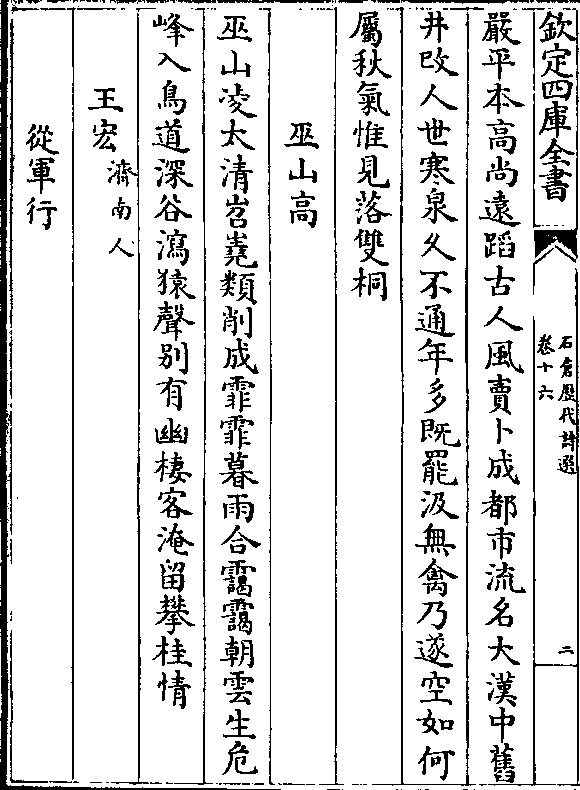 欽定四庫全書
石倉歷代詩選
卷十六
二
嚴平本高尚遠蹈古人風賣卜成都市流名大漢中舊
井改人世寒泉久不通年多既罷汲無禽乃遂空如何
屬秋氣惟見落雙桐
巫山高
巫山凌太清岧嶤類削成霏霏暮雨合靄靄朝雲生危
峰入鳥道深谷瀉猿聲別有幽棲客淹留攀桂情
王宏濟南人
從軍行